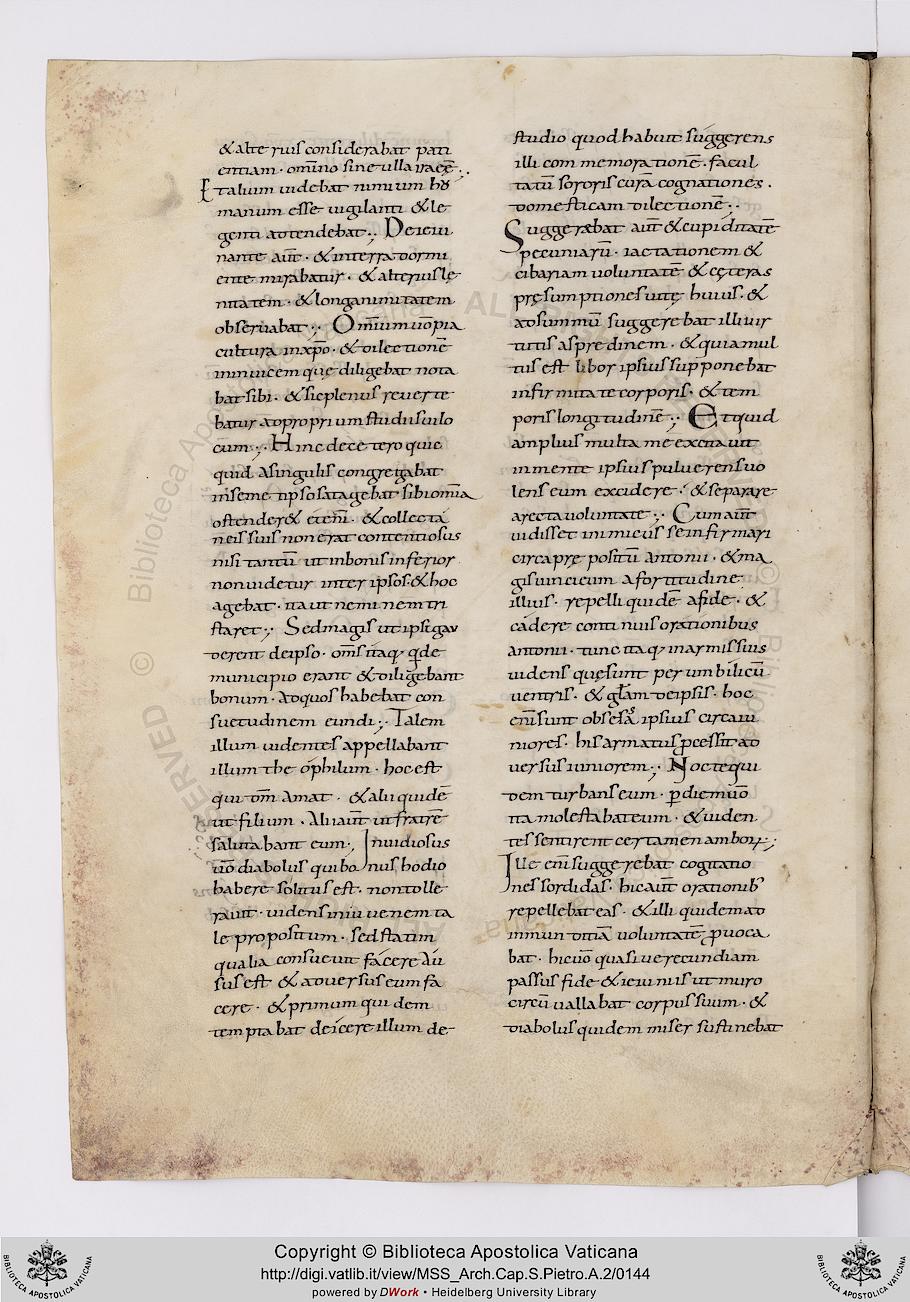 & alterius considerabat pati
entiam · omnino sine ulla irae ē ·,
Et alium uidebat nimium hu
manum esse uigilanti & le
genti adtendebat ·,· De ieiu
nante aūt · & in terra dormi
ente mirabatur · & alterius le
nitatem · & longanimitatem
obseruabat ·,· Omnium uō pia
cultura in xp̄o · & dilectionē
in inuicem quę diligebat nota
bat sibi · & sic plenus reuerte
batur ad proprium studiis uilo
cum ·,· Hinc de cetero quic
quid a singulis congregabat
in semetipso satagebat sibi omīa
ostender& etenī · & collecta
neis suis non erat contentiosus
nisi tantū ut in bonis inferior
non uidetur inter ipsos · & hoc
agebat · ita ut neminem tri
staret ·, Sed magis ut ipsi gau
derent de ipso · oms̄ itaq; q̄ de
municipio erant & diligebant
bonum · ad quos habebat con
suetudinem eundi ·, Talem
illum uidentes appellabant
illum theophilum · hoc est
qui dm̄ amat · & alii quidē
ut filium · Alii aūt ut fratrē
salutabant eum ·, Inuidiosus
uō diabolus qui bonus hodio
habere solitus est · non tolle
rauit · uidens in iuuenem ta
le propositum · sed statim
qualia consueuit facere au
sus est & aduersus eum fa
cere · & primum quidem
temptabat deicere illum de-
studio quod habuit suggerens
illi commemorationē · facul
tatū sororis curā cognationes ·
domesticam dilectionē ·,·
Suggerebat aūt & cupiditatē
pecuniarū · iactationem &
cibariam uoluntatē & cęteras
pręsumptiones uitę huius · &
ad summū suggerebat illi uir
tutis aspredinem · & quia mul
tus est libor ipsius supponebat
infirmitate corporis · & tem
poris longitudinē ·,· Et quid
amplius multa me excitauit
in mente ipsius puluerens uo
lens eum excidere · & separare
a recta uoluntate ·,· Cum aūt
uidisset inimicus se infirmari
circa prepositū antonii · & ma
gis uinci eum a fortitudine
illius · repelli quidē a fide · &
cadere continuis orationibus
antonii · tunc itaq; in armis suis
uidens quę sunt per umbilicū
uentris · & gl̄am de ipsis · hoc
enī sunt obsessa ipsius circa iu
niores · his armatus p̄cessit ad
uersus iuniorem ·,· Nocte qui
dem turbans eum · p̄ diem uō
ita molestabat eum · & uiden
tes sentirent certamen amborꝝ ·,
Ille enī suggerebat cogitatio
nes sordidas · hic aūt orationib;
repellebat eas · & illi quidem ad
inmunditiā uoluntatē p̄uoca
bat · hic uō quasi uerecundiam
passus fide & ieiuniis ut muro
circū uallabat corpus suum · &
diabolus quidem miser sustinebat
Copyright © Biblioteca Apostolica Vaticana
http://digi.vatlib.it/view/MSS_Arch.Cap.S.Pietro.A.2/0144
powered by DWork • Heidelberg University Library